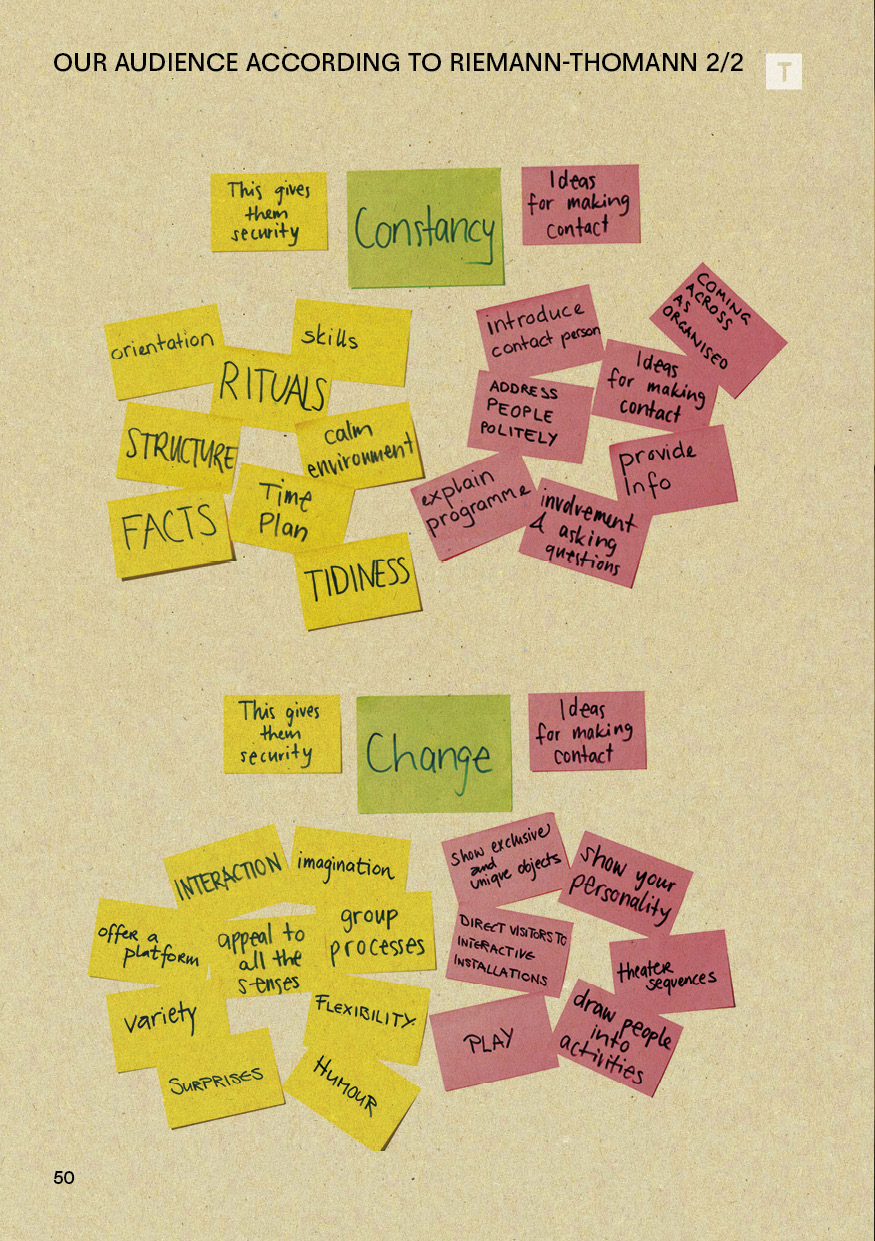 OUR AUDIENCE ACCORDING TO RIEMANN-THOMANN 2/2
T
This gives
them
security
Constancy
Ideas
for making
contact
orientation
skills
RITUALS
STRUCTURE
calm
environment
FACTS
Time
Plan
TIDINESS
introduce
contact person
COMING
ACROSS
AS
ORGANISED
Ideas
for making
contact
ADDRESS
PEOPLE
POLITELY
provide
Info
explain
programme
involvement
& asking
questions
This gives
them
security
Change
Ideas
for making
contact
INTERACTION
imagination
offer a
platform
appeal to
all the
senses
group
processes
variety
FLEXIBILITY
SURPRISES
HUMOUR
show exclusive
and
unique objects
show your
personality
DIRECT VISITORS TO
INTERACTIVE
INSTALLATIONS
theater
sequences
PLAY
draw people
into
activities
50